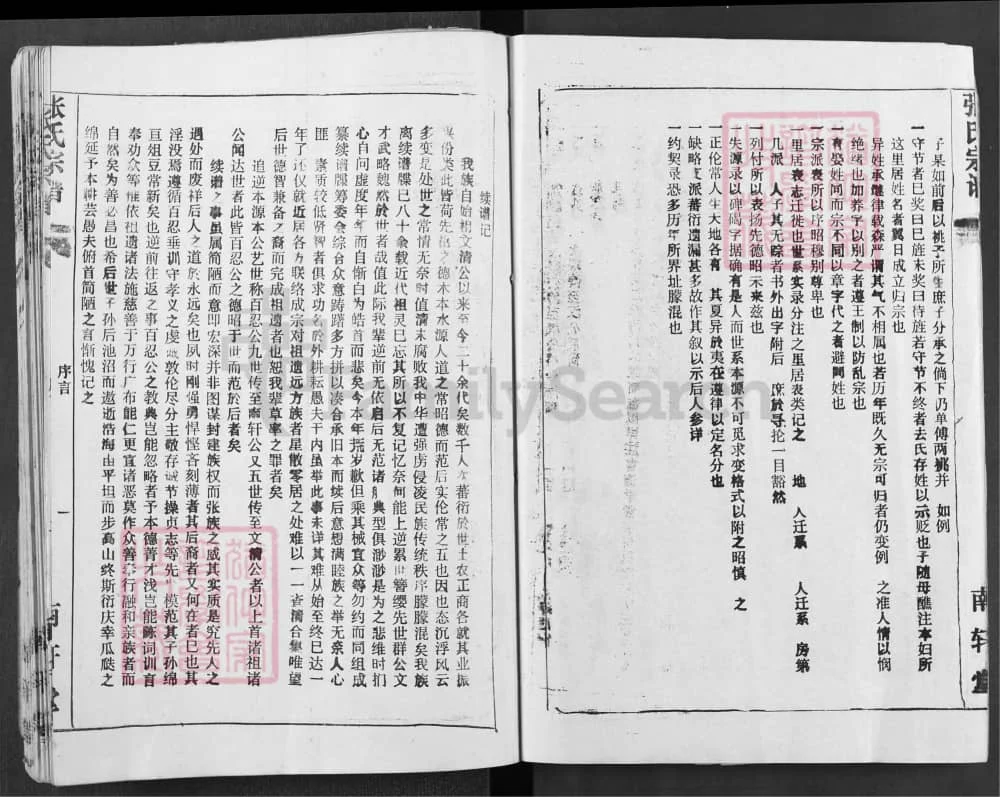 张氏宗谱
子杲如前后以祧子所生庶子分承之倘下仍单傅两祧并 如例
一守节者已㚢曰旌未㚢曰待旌若守节不终者去氏存姓以示贬也子随母醮注本妇所
这里居姓名者冀日成立归宗也
异姓承继律载森严谓其气不相属也若历年既久无宗可归者仍变例 之准人情以悯
绝绪也加养字以别之者遵王制以防乱宗也
一有娶姓同而宗不同以章字代之者避同姓也
一宗派表所以序昭穆别尊卑也
一里居表志迁徙也世系实录分注之里居表类记之 地 人迁系 人迁系 房第
几派 人子其无踪者书外出字附后 庶於寻抡一目豁然
一列忖所以表扬先德昭示来兹也
一失源录以碑碣字据确有是人而世系本源不可觅求变格式以附之昭慎 之
一正伦常人生大地各有 其夏异於夷在遵律以定名分也
一缺略支派蕃衍遗漏甚多故作其叙以示后人参详
一约契录恐多历年所界址朦混也
南轩堂
张氏宗谱
续谱记
我族自始祖文清公以来至今二十余代矣数千人 蕃衍於世士农正商各就其业振
份类此皆荷先祖之德木本水源人道之常昭德而范后实伦常之五也因也态沉浮风云
多变是处世之常情无奈时值清末腐败我中华遭强虏侵凌民族传统秩序朦朦混矣我族
离续谱牒已八十余载近代祖灵已忘其所以不复记忆奈何能上逆累世簪缨先世群公文
才武略巍然於世者哉值此际我辈逆前无依启后无范诸 典型俱渺渺是为之悲维时扪
心自问虚度年年而自惭白为皓首而悲矣今本年拖岁歉但乘其械宜众等勿约而同组成
纂续谱牒筹委会综合众意踌躇多方拼以凑合承旧本而续后意想满睦族之举无亲人心
匪 素质较低贤智者俱求功名於外耕耘愚夫于内虽举此事未详其难从始至终已达一
年了还仅就近居各方联络成宗对祖遗远方族者星散零居之处难以一一查满合集唯望
后世德智兼备之裔而完成祖遗者也恕我辈草率之罪者矣
追逆本源本公艺世称百忍公九世传至南轩公又五世传至文清公者以上首诸祖诸
公闻达世者此皆百忍公之德昭于世而范於后者矣
续谱之事虽属简陋而意即宏深并非图谋封建族权而张族之威其实质是究先人之
遇处而废祥后人之道於永远矣也夙时刚强勇悍悭吝刻薄者其后裔者又何在者已也其
淫没焉遵循百忍垂训守孝义之虔诚敦伦尽分主敬存诚节操贞志等先 模范其子孙绵
亘俎豆常新矣也逆前往返之事百忍公之教典岂能忽略者予本德菁才浅岂能陈词训言
奉劝众等唯依祖遗诸法施慈善于万行广布能仁更宜诸恶莫作众善奉行融和亲族者而
自然矣为善必昌也希后世子孙后池沼而遨逝浩海由平坦而步高山终斯衍庆幸瓜瓞之
绵延予本耕芸愚夫俯首简陋之言惭愧记之
序言
一
南轩堂
FamilySearch